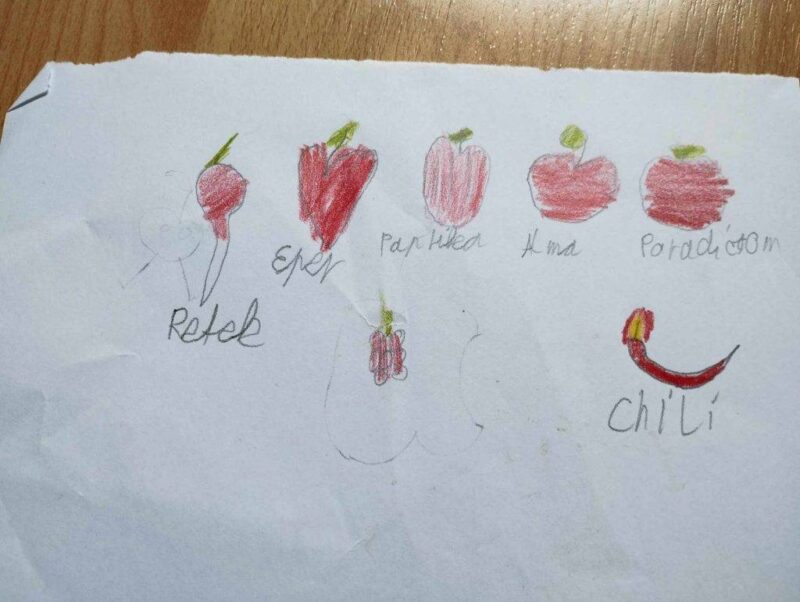 Retek
Eper
Paprika
Alma
Paradicsom
Chili